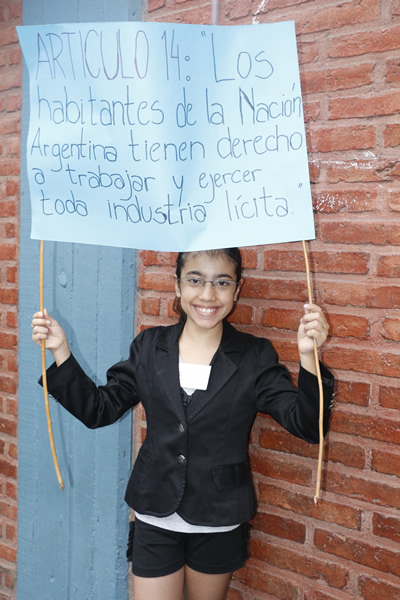 ARTICULO 14: "Los
habitantes de la Nación
Argentina tienen derecho
a trabajar y ejercer
toda industria lícita."